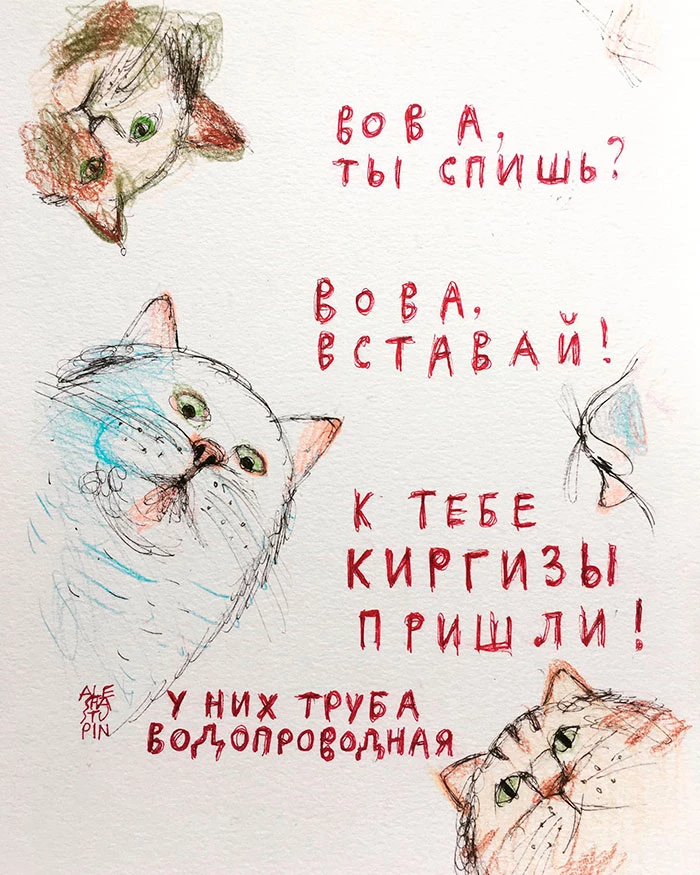 ВОВА,
ТЫ СПИШЬ?
ВОВА,
ВСТАВАЙ!
К ТЕБЕ
КИРГИЗЫ
ПРИШЛИ!
У НИХ ТРУБА
ВОДОПРОВОДНАЯ
ALE
SHA
STU
PIN